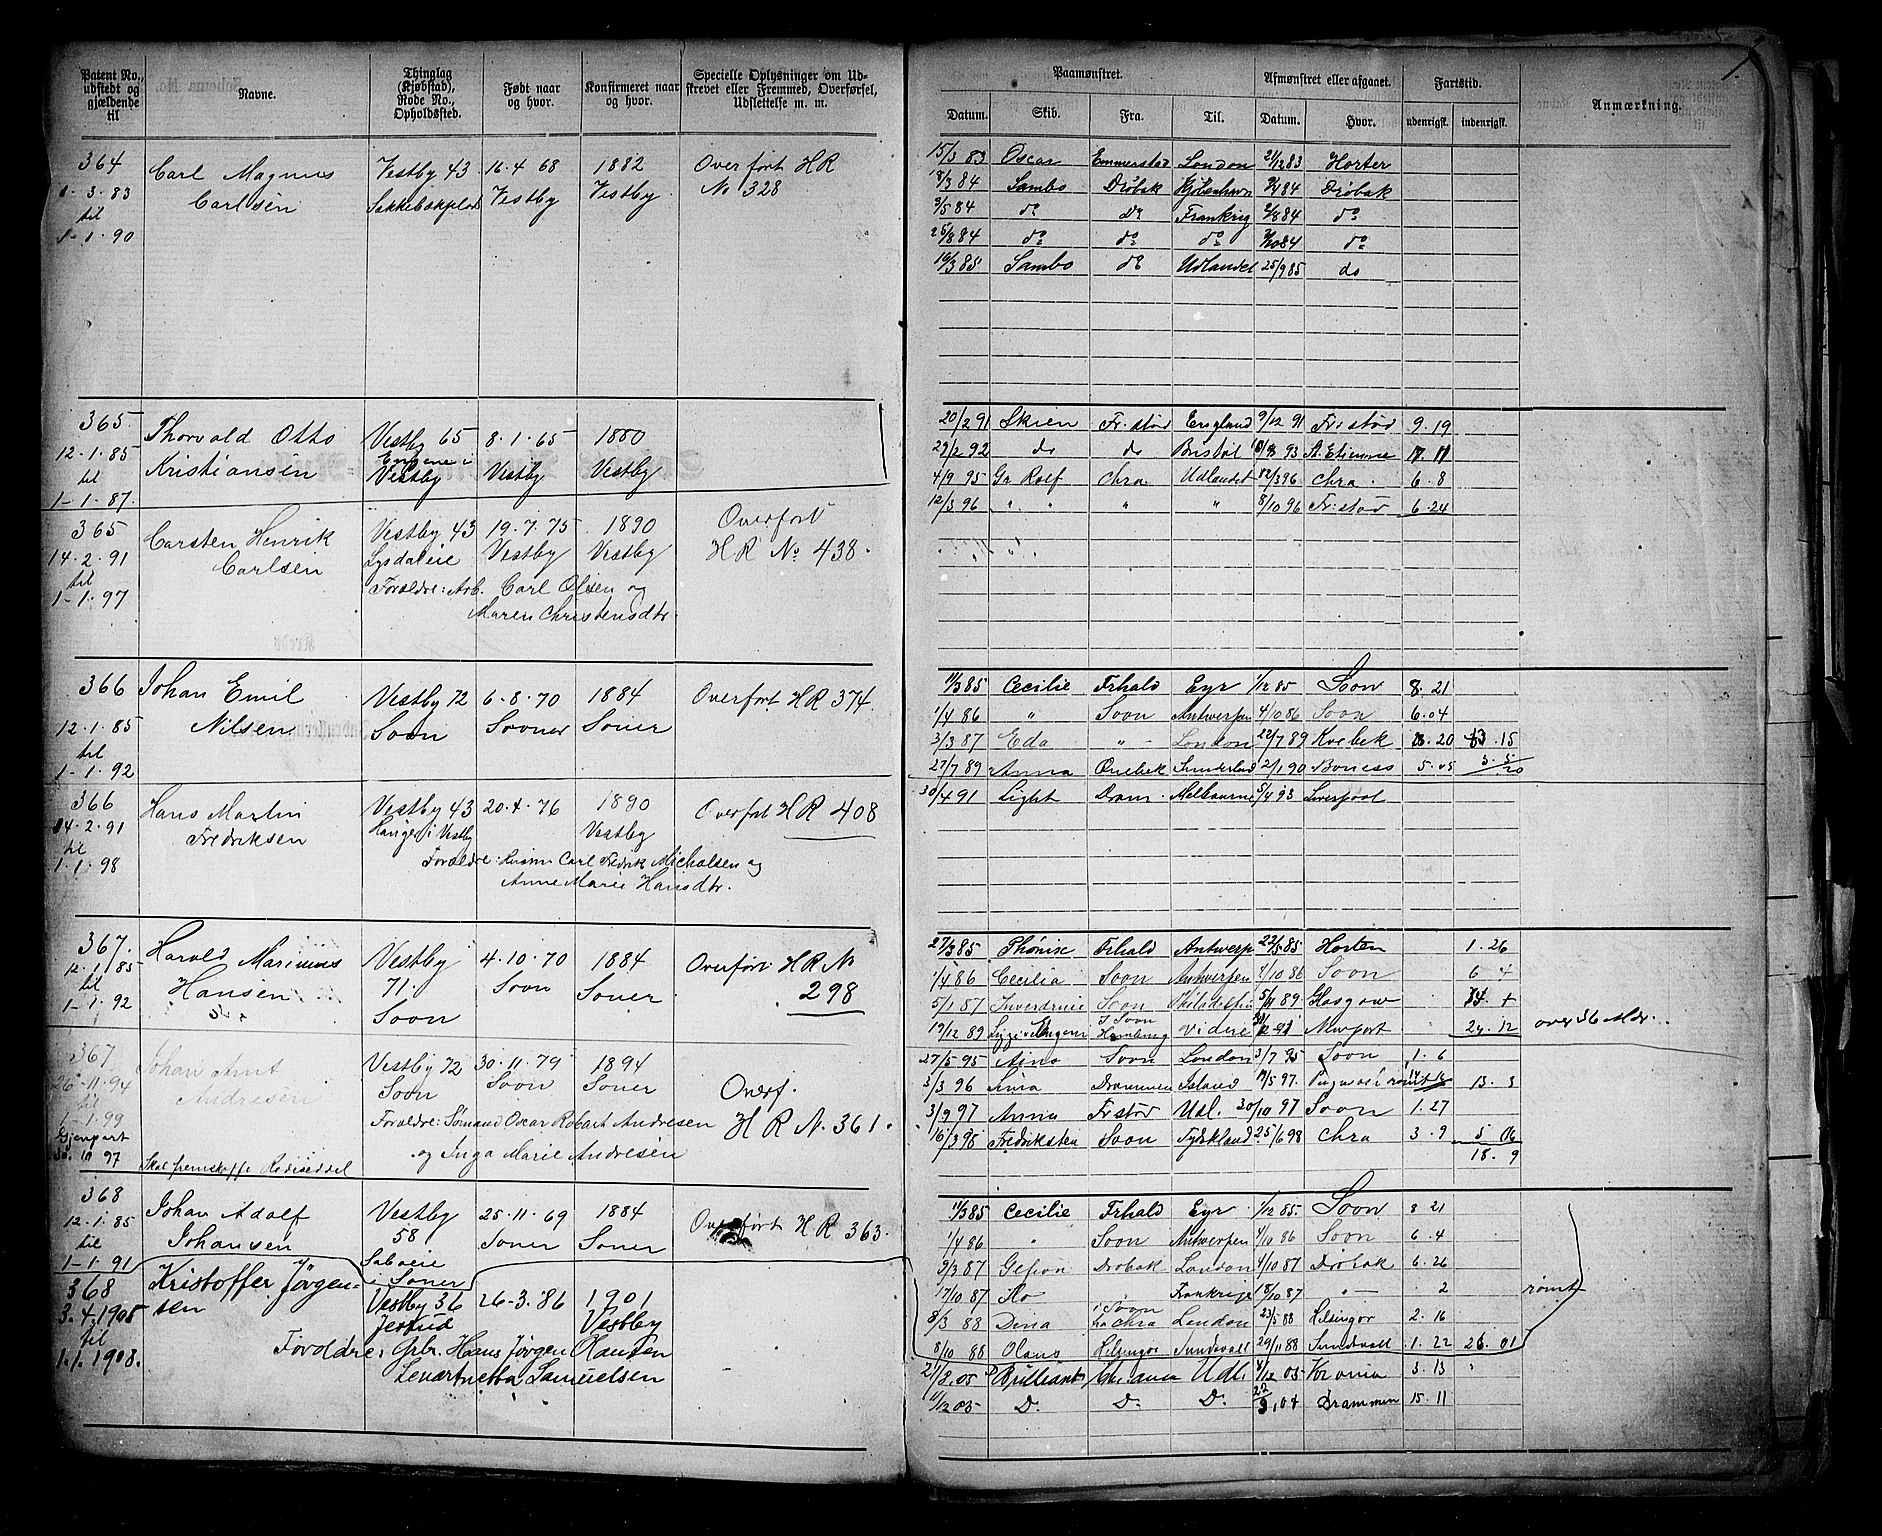 Patent No., udstedt og gjældende til
Navne.
Thinglag (Kjøbstad), Rode No., Opholdssted.
Født naar og hvor.
Konfirmeret naar og hvor.
Specielle Oplysninger om Udskrevet eller Fremmed, Overførsel, Udslettelse m. m.
Paamønstret.
Afmønstret eller afgaaet.
Fartstid.
Anmærkning.
Datum. Skib. Fra. Til. Datum. Hvor. udenrigsk. indenrigsk.
364 Carl Magnus Vestby 43 16-4 68 1882 Overført HR
1-3.83 Carlsen Vestby Vestby No 328
til
1-1.90
15/3 83 Oscar London 83 Horter
84 Sambo Drøbak Kjøbenhavn 84 Drøbak
9/5 84 do Do Frankrig 84 do
25/8 84 do do do 84 do
19/3 85 Sambo do Udlandet 25/9 85 do
365. Thorvald Otto Vestby 65 8.1.65 1880
12-1.85 Kristiansen Vestby Vestby Vestby
til
1-1.87.
20/2 91 Skien Fr. stad England 9/12 91 Fr. stad 9.19
92 do do Bristol 93 St. Etienne 17.11
4/9 95 Gr Rolf Chra Udlandet 12/3 96 Chra. 6.8
12/3 96 " " " " 8/10 96 Fr. stad 6.24
365 Carsten Henrik Vestby 43 19.7.75 1890 Overført
14.2.91 Carlsen Lysdaleie Vestby Vestby HR No 438.
til Forældre: Arb. Carl Olsen og
1-1.97 Maren Christensdtr.
366 Johan Emil Vestby 72 6-8.70 1884 Overført HR 374.
12.1.85 Nilsen Soon Sooner Soner
til
1-1.92
11/3 85 Cecilie Frhald Eyr 1/12 85 Soon 8.21
1/4 86 " Soon Antwerpen 4/10 86 Soon 6.04
3/3 87 Eda " London 22/7 89 Kvebek 20 15
27/7 89 Anna Quebek Sunderland 2/1 90 Boness 5.05
366 Hans Martin Vestby 43 20.4.76 1890 Overført HR 408
14.2.91 Fredriksen i Vestby Vestby
til Forældre: Carl Fredrik Micholsen og
1.1.98 Anne Marie Hansdtr.
30/4 91 Light Dram. Melbourne 5/4 93 Liverpool
367. Harald Marinius Vestby 4.10.70 1884 Overført HR No
12.1.85 Hansen 71. Soon Soner 298
til Soon
1-1.92
27/3 85 Phønix Frhald Antwerp 85 Horten 1.26
1/4 86 Cecilia Soon Antwerpen 86 Soon 6 4
5/1 87 Soon 89 Glasgow
19/12 89 Hamburg Videre 92 Newport 24.12 over 36 Mdr.
367 Johan Arnt Vestby 72 30.11.79 1894 Overf.
26.11.94 Andresen Soon Soon Soner HR No. 361.
til Forældre: Sømand Oscar Robert Andresen
1-1.99 og Inga Marie Andresen
Gjenpart
30.10 97 Skal fremskaffe Rodeseddel
27/5 95 Ajno Soon London 3/7 95 Soon 1.6
3/3 96 Drammen Island 19/5 97. rømt 13.3
3/9 97 Anna Fr stad Udl. 30/10 97 Soon 1.27
16/3 98 Fredriksten Soon Tydskland 25/6 98 Chra 3.9 5 06
18.9
368 Johan Adolf Vestby 25.11.69 1884 Overført HR 363.
12.1.85 Johansen 58 Soner Soner
til
1-1.91 i Soner
11/3 85 Cecilie Frhald Eyr 1/12 85 Soon 8 21
1/4 86 " Soon Antwerpen 4/10 86 Soon 6.4
3/3 87 Gefion Drobak London 4/10 87 Drøbak 6.26
17/10 87 Do Frankrige 18/10 87 " 2 rømt
8/3 88 Dina i Soon fra Chra London 23/5 88 Helsingør 2.16
8/10 88 Olaus Helsingør Sundsvall 29/11 88 Sundsvall 1.22 26.01
368 Kristoffer Jørgen- Vestby 36 26-3.'86 1901
3.4.1905 sen Vestby
til Foroldre: Grbr. Hans Jørgen Olausen
1.1.1908. Samuelsen
05 Brilliant Udl. 4/12 05 Kr ania 3.13
11/12 05 D. D. D. Drammen 15.11